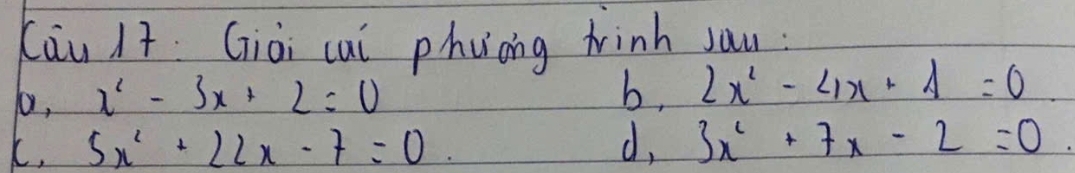 Câu 17: Giải các phương trình sau:
a, x² - 3x + 2 = 0 b, 2x² - 4x + 1 = 0
c, 5x² + 22x - 7 = 0. d, 3x² + 7x - 2 = 0.